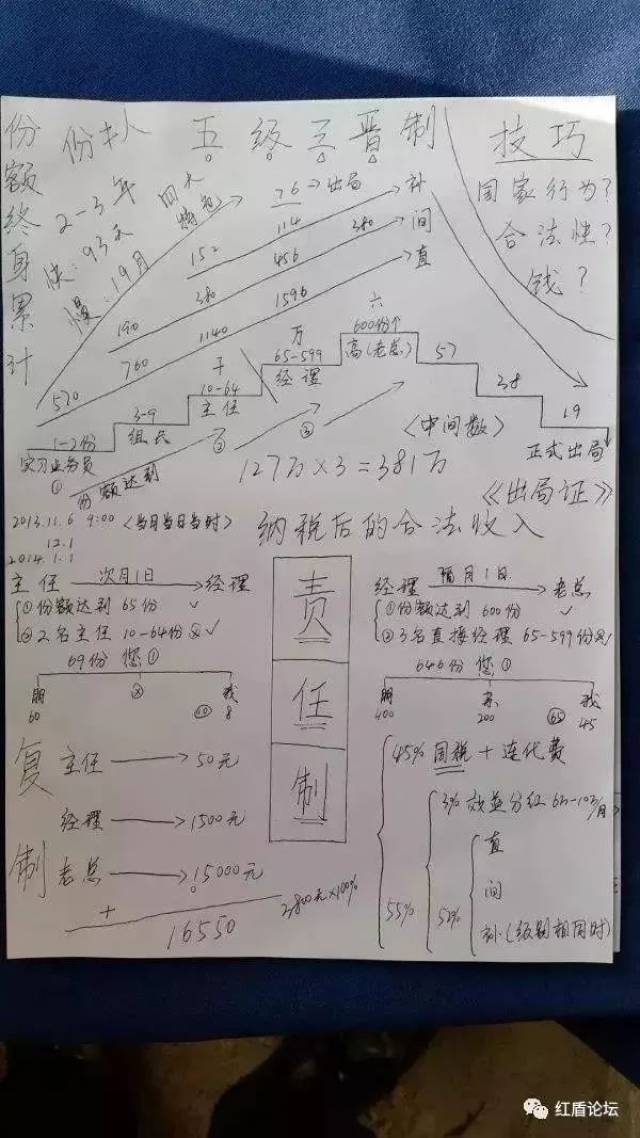 份额终身累计
份 扌人 五级三晋制
技巧
国家行为?
合法性?
钱?
2-3年
快:93天
慢:19月
四大
76→出局
114
补
152
456
380
间
190
380
1596
直
570
760
1140
1-2份
实习业务员
①
3-9
组长
干
10-64
主任
万
65-599
经理
六
600份个
高(老总)
57
38
19
正式出局
份额达到
③
②
〈中间数〉
127万×3=381万
《出局证》
2013.11.6 9:00〈当月当日当时〉
12.1
2014.1.1
纳税后的合法收入
主任 次月1日 经理
①份额达到65份 ✓
②2名主任10-64份 ✓
69份 您①
朋
60
我
8
责
任
制
经理 隔月1日 老总
①份额达到600份 ✓
②3名直接经理 65-599份
646份 您①
朋
400
亲
200
我
45
复制
主任→50元
经理→1500元
老总→15000元
+
16550
2800元×100%
45%国税+连代费
55%
3%效益分红
52%
直
间
补(级别相同时)
红盾论坛